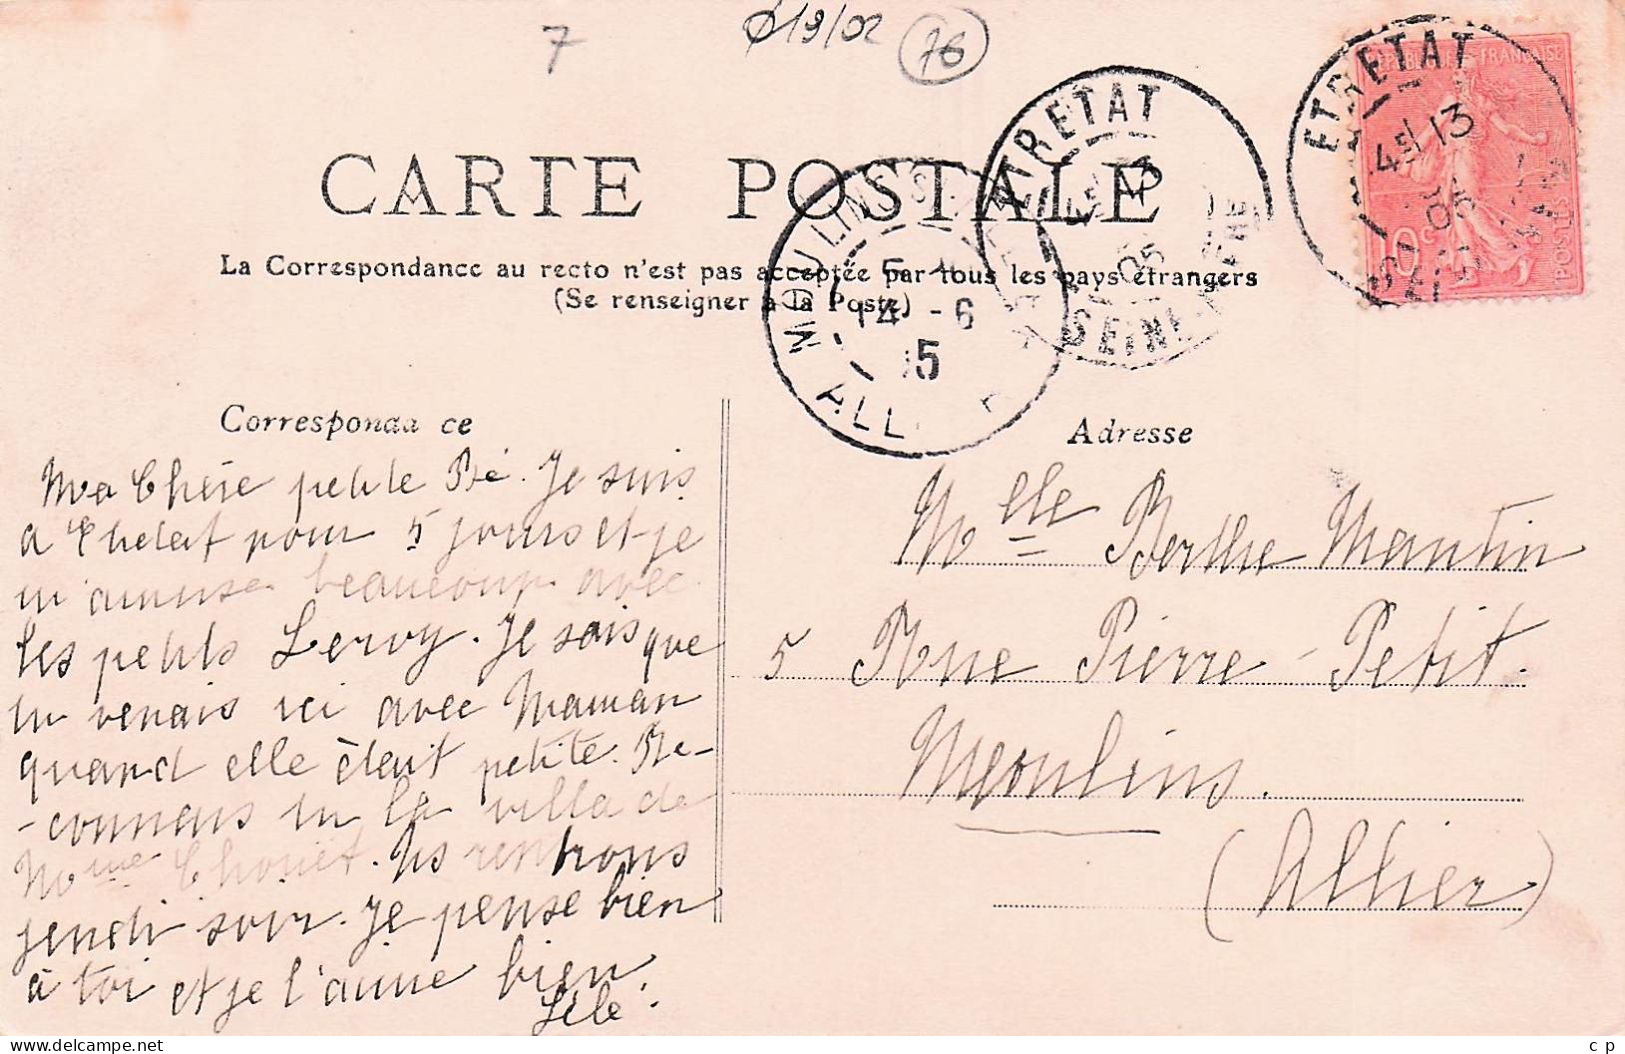 7
19/02
76
CARTE POSTALE
La Correspondance au recto n'est pas acceptée par tous les pays étrangers
(Se renseigner à la Poste)
ETRETAT
4E 13
05
REPUBLIQUE FRANÇAISE
10c
POSTES
ETRETAT
13
05
SEINE
MOULINS S
14 -6
05
ALL
Correspondance
Ma Chère petite Bé. Je suis
à Etretat pour 5 jours et je
m'amuse beaucoup avec
les petits Leroy. Je sais que
tu venais ici avec Maman
quand elle était petite. Re-
-connais tu la villa de
Mme Chouet. Ns rentrons
jeudi soir. Je pense bien
à toi et je t'aime bien.
Lélé.
Adresse
Mlle Berthe Mantin
5 Rue Pierre-Petit.
Moulins.
(Allier)
c p